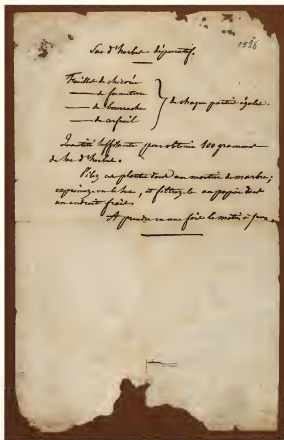 1526
Suc d'herbes dépuratif.
Feuilles de chicorée
—— de fumeterre
—— de bourrache
—— de cerfeuil
de chaque partie égale.
Quantité suffisante pour obtenir 100 grammes
de suc d'herbes.
Pilez ces plantes dans un mortier de marbre;
exprimez-en le suc, et filtrez-le au papier dans
un endroit frais.
A prendre en une fois le matin, à jeun